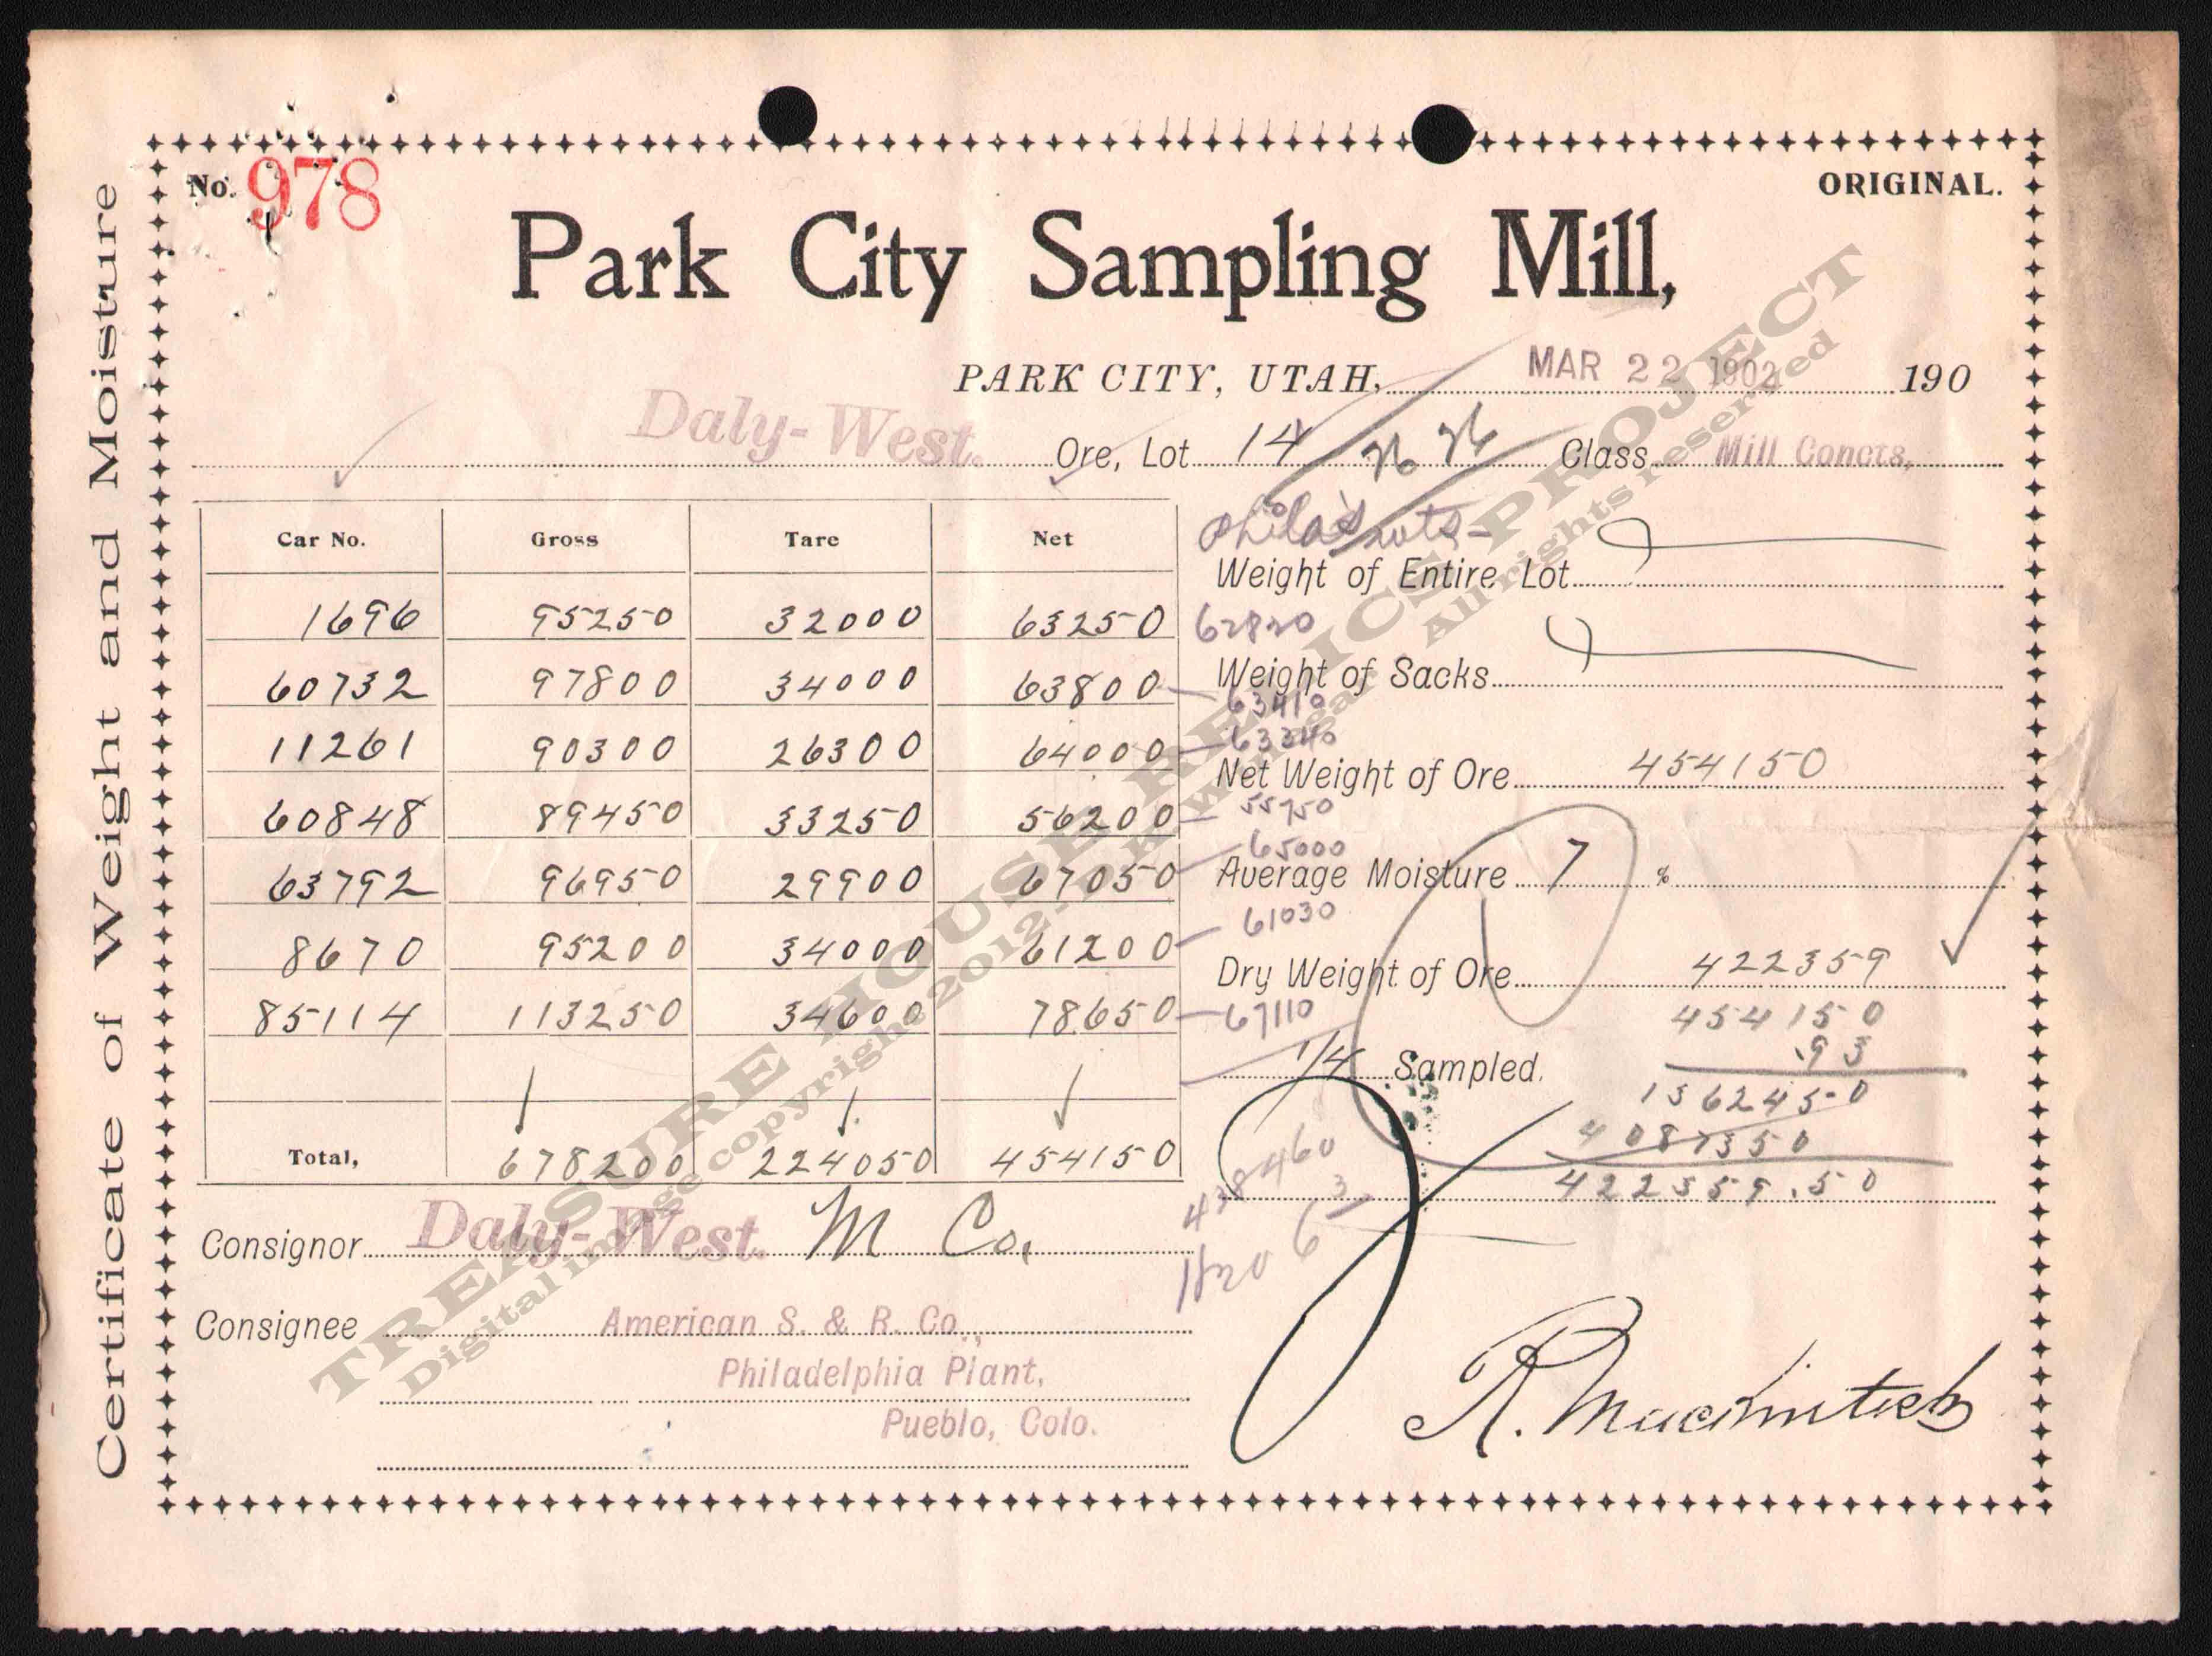 No. 978
ORIGINAL.
Park City Sampling Mill,
PARK CITY, UTAH, MAR 22 1902 190
Daly-West. Ore, Lot 14 Class Mill Concts,
Certificate of Weight and Moisture
Car No. Gross Tare Net
1696 95250 32000 63250 62820
60732 97800 34000 63800 63410
11261 90300 26300 64000 63340
60848 89450 33250 56200 55750
63792 96950 29900 67050 65000
8670 95200 34000 61200 61030
85114 113250 34600 78650 67110
Total, 678200 224050 454150
438460
Weight of Entire Lot
Weight of Sacks
Net Weight of Ore 454150
Average Moisture 7 %
Dry Weight of Ore 422359
454150
.93
1362450
4087350
422359.50
1/4 Sampled.
Consignor Daly-West. M Co.
Consignee American S. & R. Co.,
Philadelphia Plant,
Pueblo, Colo.
R. Macintosh
TREASURE HOUSE RELICS PROJECT
All rights reserved